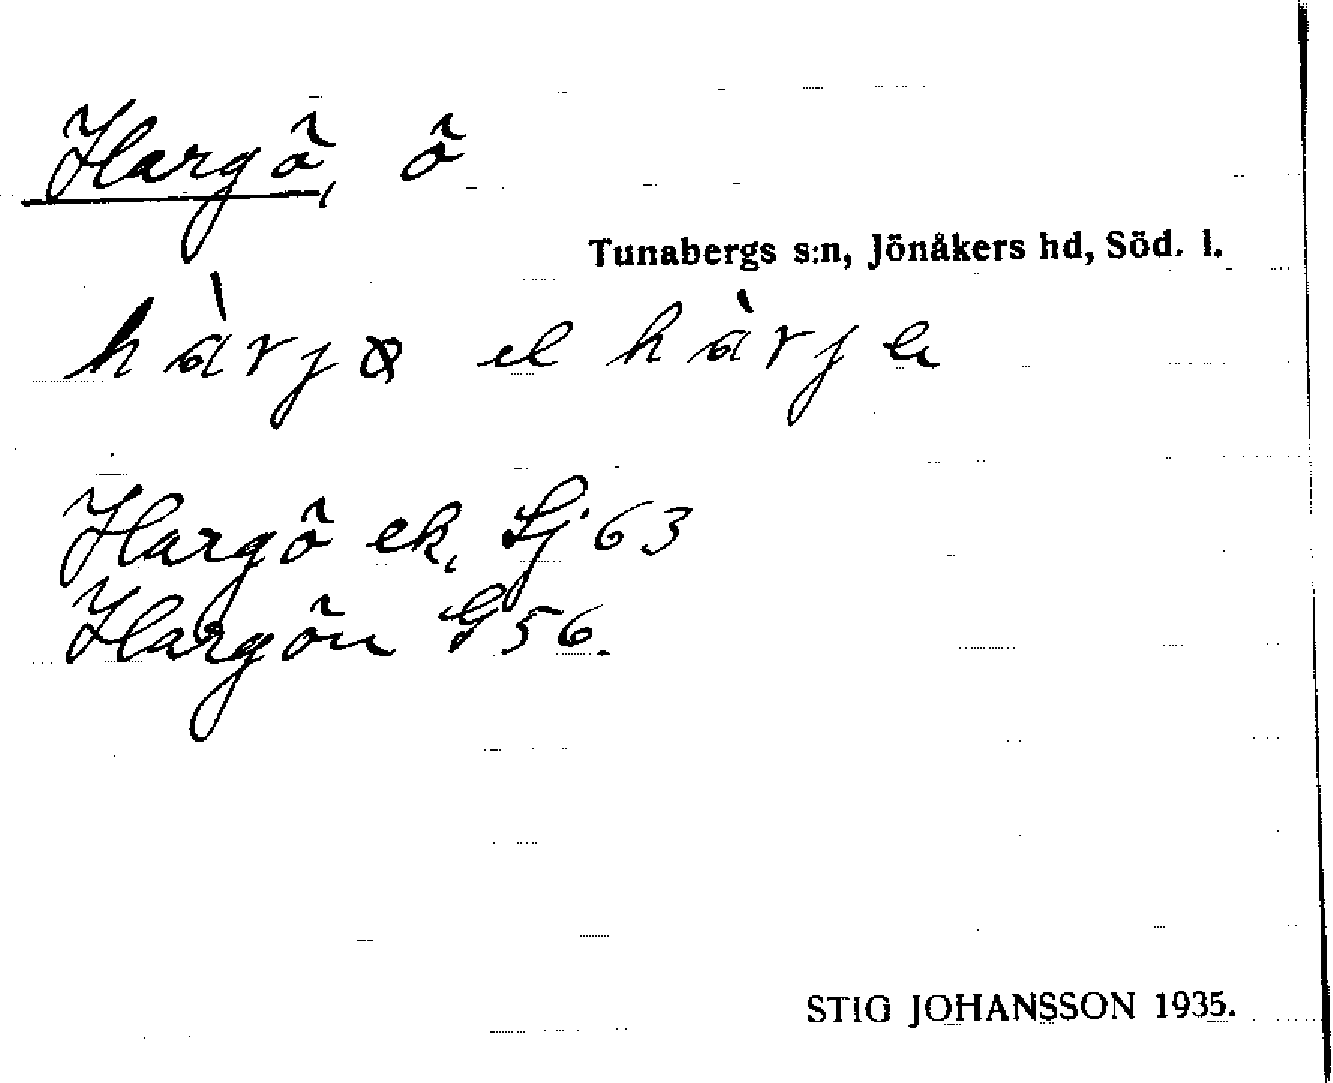 Hargö, ö
Tunabergs s:n, Jönåkers hd, Söd. l.
hàrjɷ el hàrje
Hargö ek, Sj 63
Hargön G 56.
STIG JOHANSSON 1935.